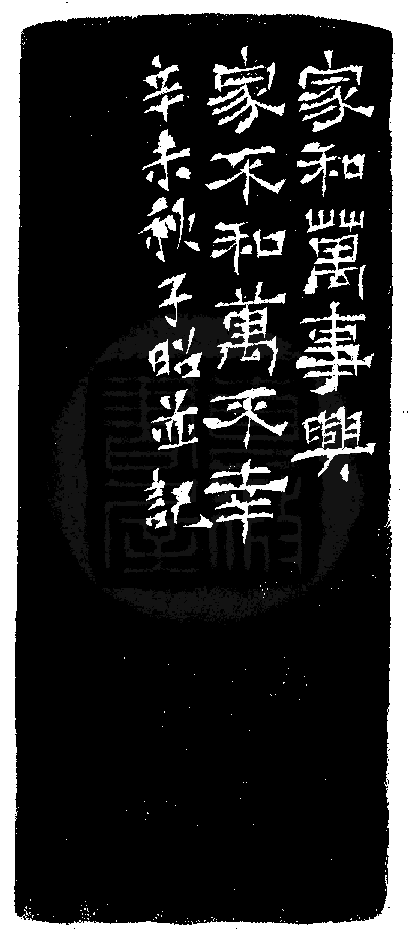 家和萬事興
家不和萬不幸
辛未秋子昭並記